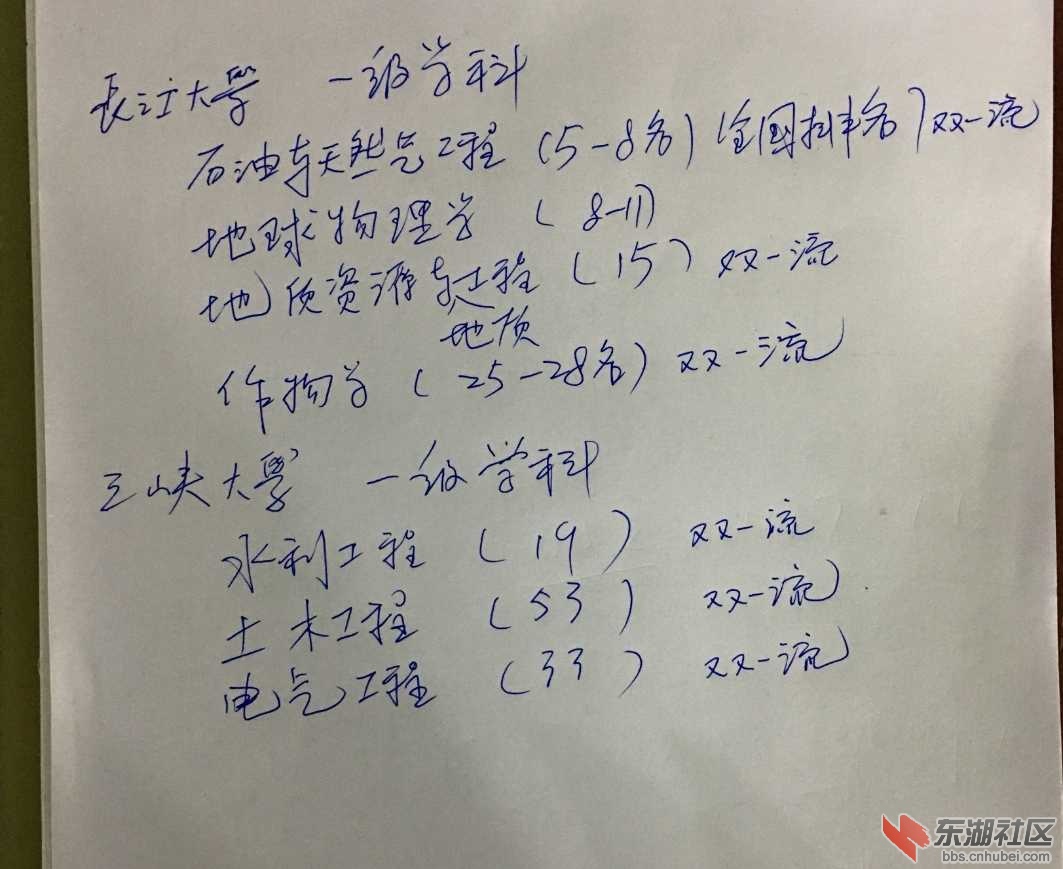 長江大學 一级学科
石油与天然气工程 (5-8名) 全国排名) 双一流
地球物理学 (8-11)
地质资源与工程 (15) 双一流
地质
作物学 (25-28名) 双一流
三峡大學 一级学科
水利工程 (19) 双一流
土木工程 (53) 双一流
电气工程 (33) 双一流
东湖社区
bbs.cnhubei.com